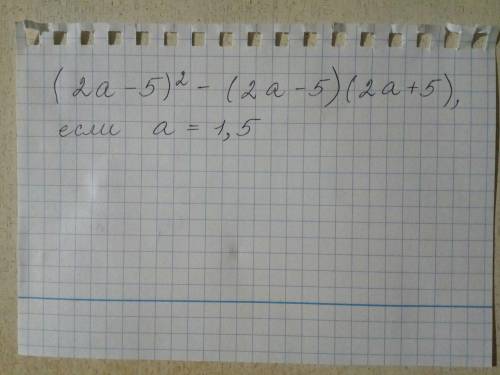 (2a-5)² - (2a-5)(2a+5),
если a = 1,5